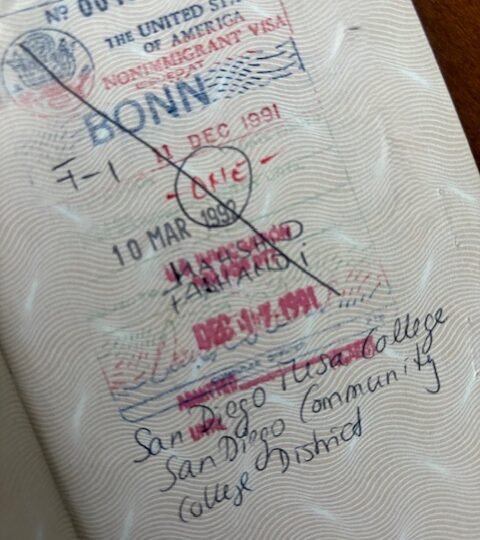 Nº 00
THE UNITED ST
OF AMERICA
NONIMMIGRANT VISA
ISSUED AT
BONN
F-1
11 DEC 1991
- ONE -
10 MAR 1992
MAHSHID
FARHANDI
DEC 17 1991
ADMITTED
UNTIL
San Diego Mesa College
San Diego Community
College District